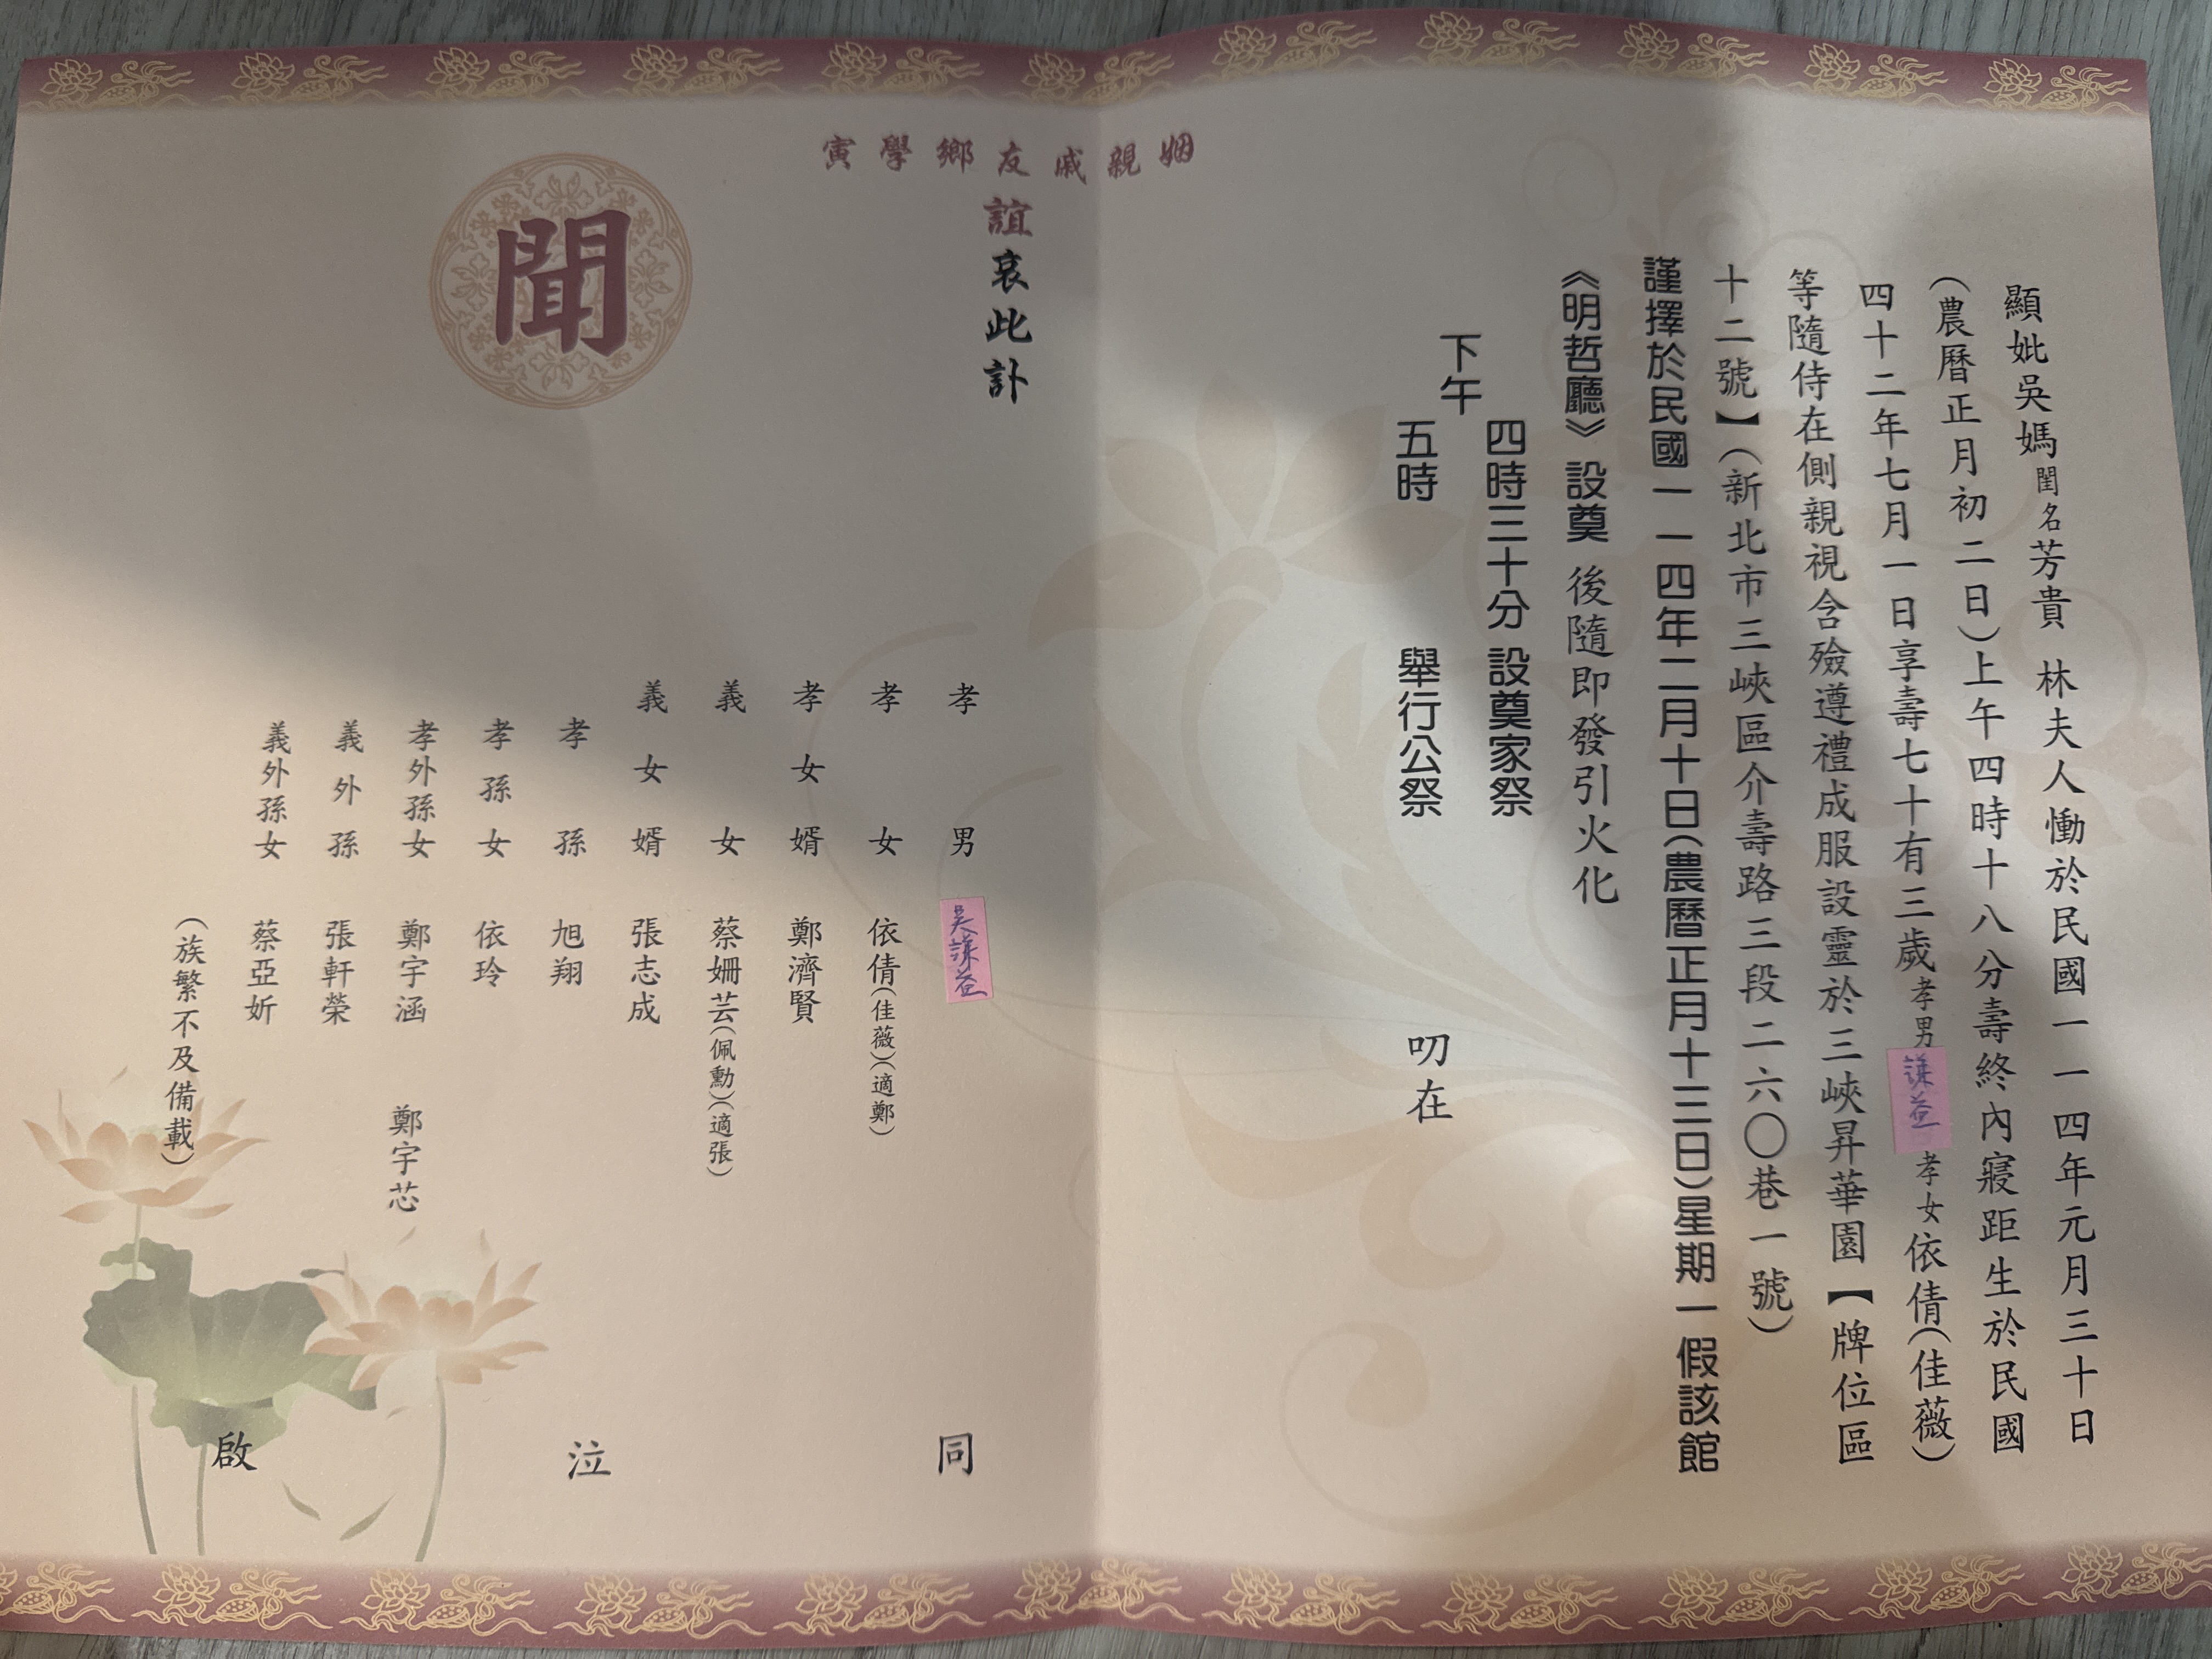 顯妣吳媽閨名芳貴 林夫人慟於民國一一四年元月三十日
(農曆正月初二日)上午四時十八分壽終內寢距生於民國
四十二年七月一日享壽七十有三歲孝男謙益孝女依倩(佳薇)
等隨侍在側親視含殮遵禮成服設靈於三峽昇華園【牌位區
十二號】(新北市三峽區介壽路三段二六〇巷一號)
謹擇於民國一一四年二月十日(農曆正月十三日)星期一假該館
《明哲廳》設奠 後隨即發引火化
下午
四時三十分 設奠家祭
五時 舉行公祭
叨在
姻親戚友鄉學寅
誼哀此訃
聞
孝男 吳謙益
孝女 依倩(佳薇)(適鄭)
孝女婿 鄭濟賢
義女 蔡姍芸(佩勳)(適張)
義女婿 張志成
孝孫 旭翔
孝孫女 依玲
孝外孫女 鄭宇涵 鄭宇芯
義外孫 張軒榮
義外孫女 蔡亞妡
(族繁不及備載)
同泣啟